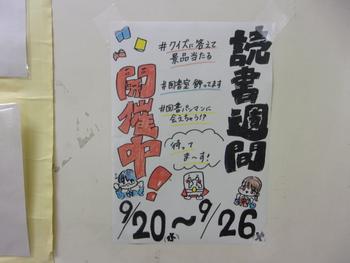 読書週間
開催中!
#クイズに答えて
景品当たる
#図書室 飾ってます
#図書パンマンに
会えちゃう!?
待って
ま〜す!
9/20〜9/26